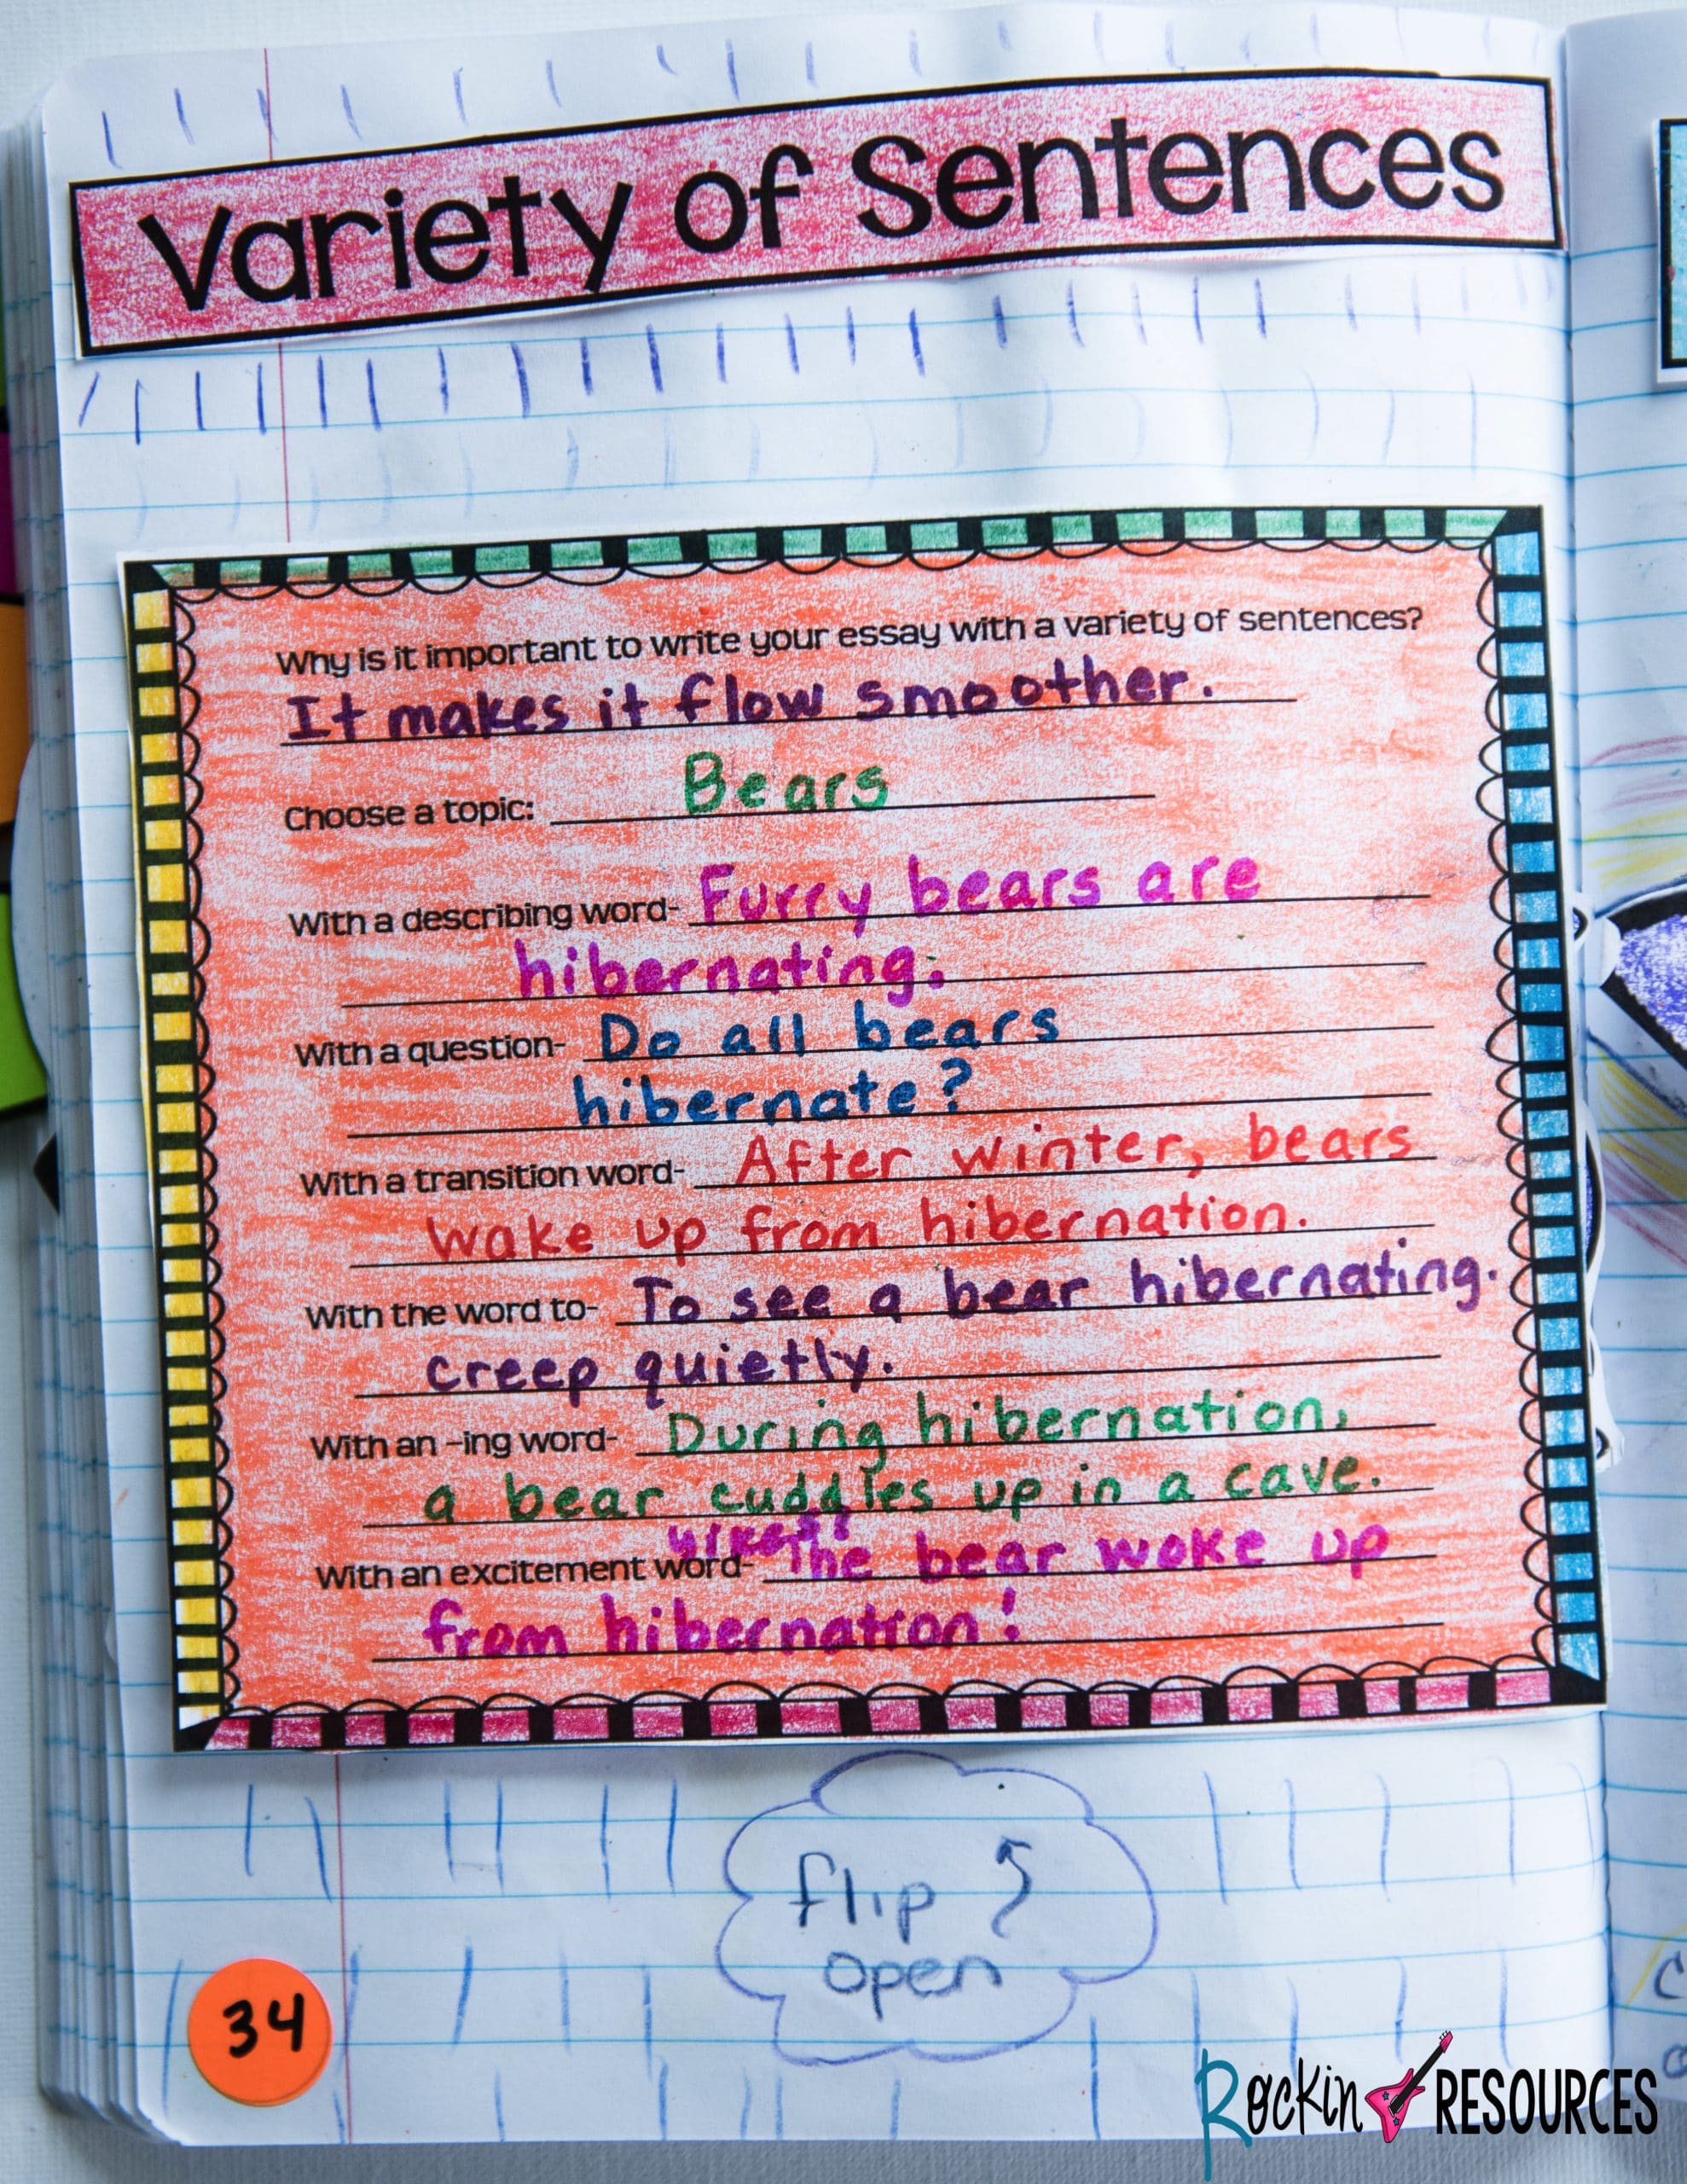 Variety of Sentences
Why is it important to write your essay with a variety of sentences?
It makes it flow smoother.
Choose a topic: Bears
With a describing word- Furry bears are
hibernating.
With a question- Do all bears
hibernate?
With a transition word- After winter, bears
wake up from hibernation.
With the word to- To see a bear hibernating.
creep quietly.
With an -ing word- During hibernation,
a bear cuddles up in a cave.
With an excitement word- Yikes! The bear woke up
from hibernation!
flip
open
34
Rockin RESOURCES